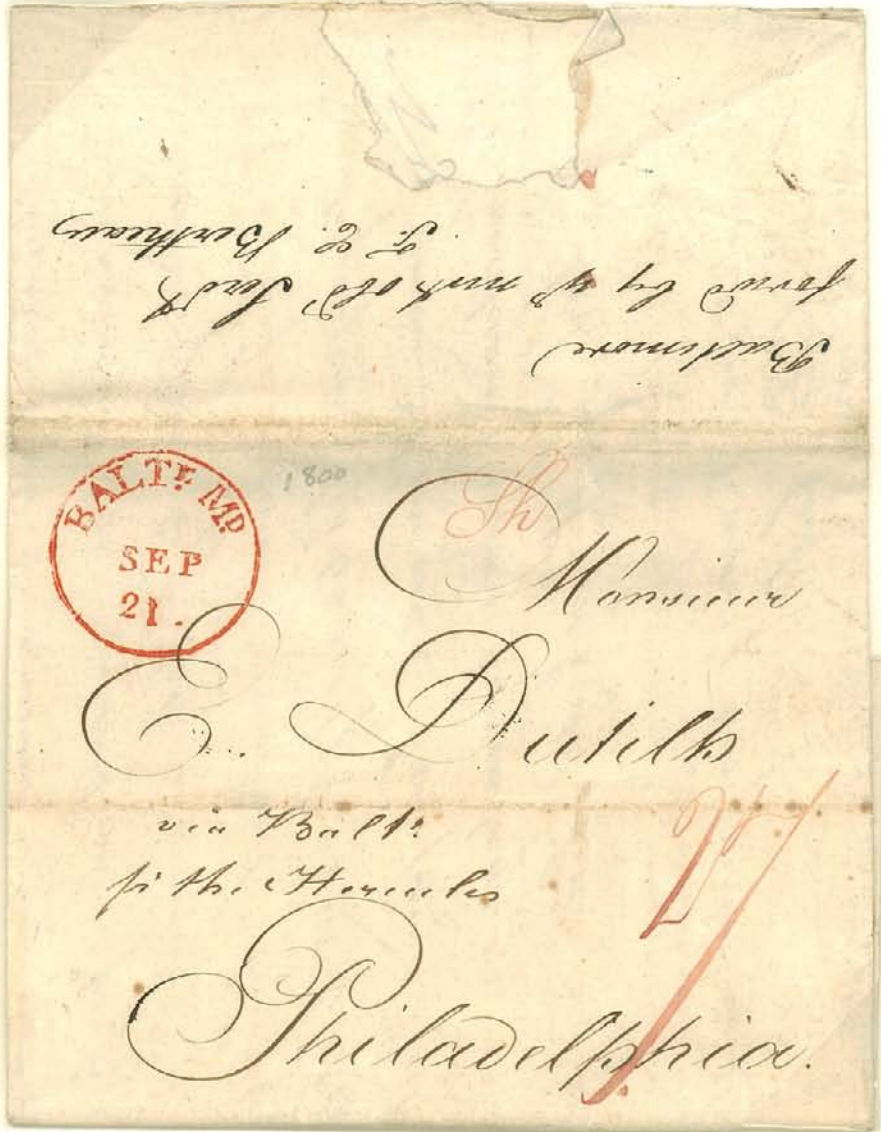 Baltimore
forwd by yr mt obd Servt
F. C.
BALTE. MD.
SEP
21.
1800
Sh
Monsieur
E. Dutilh
via Balto.
pr the Hercules
27
Philadelphia.